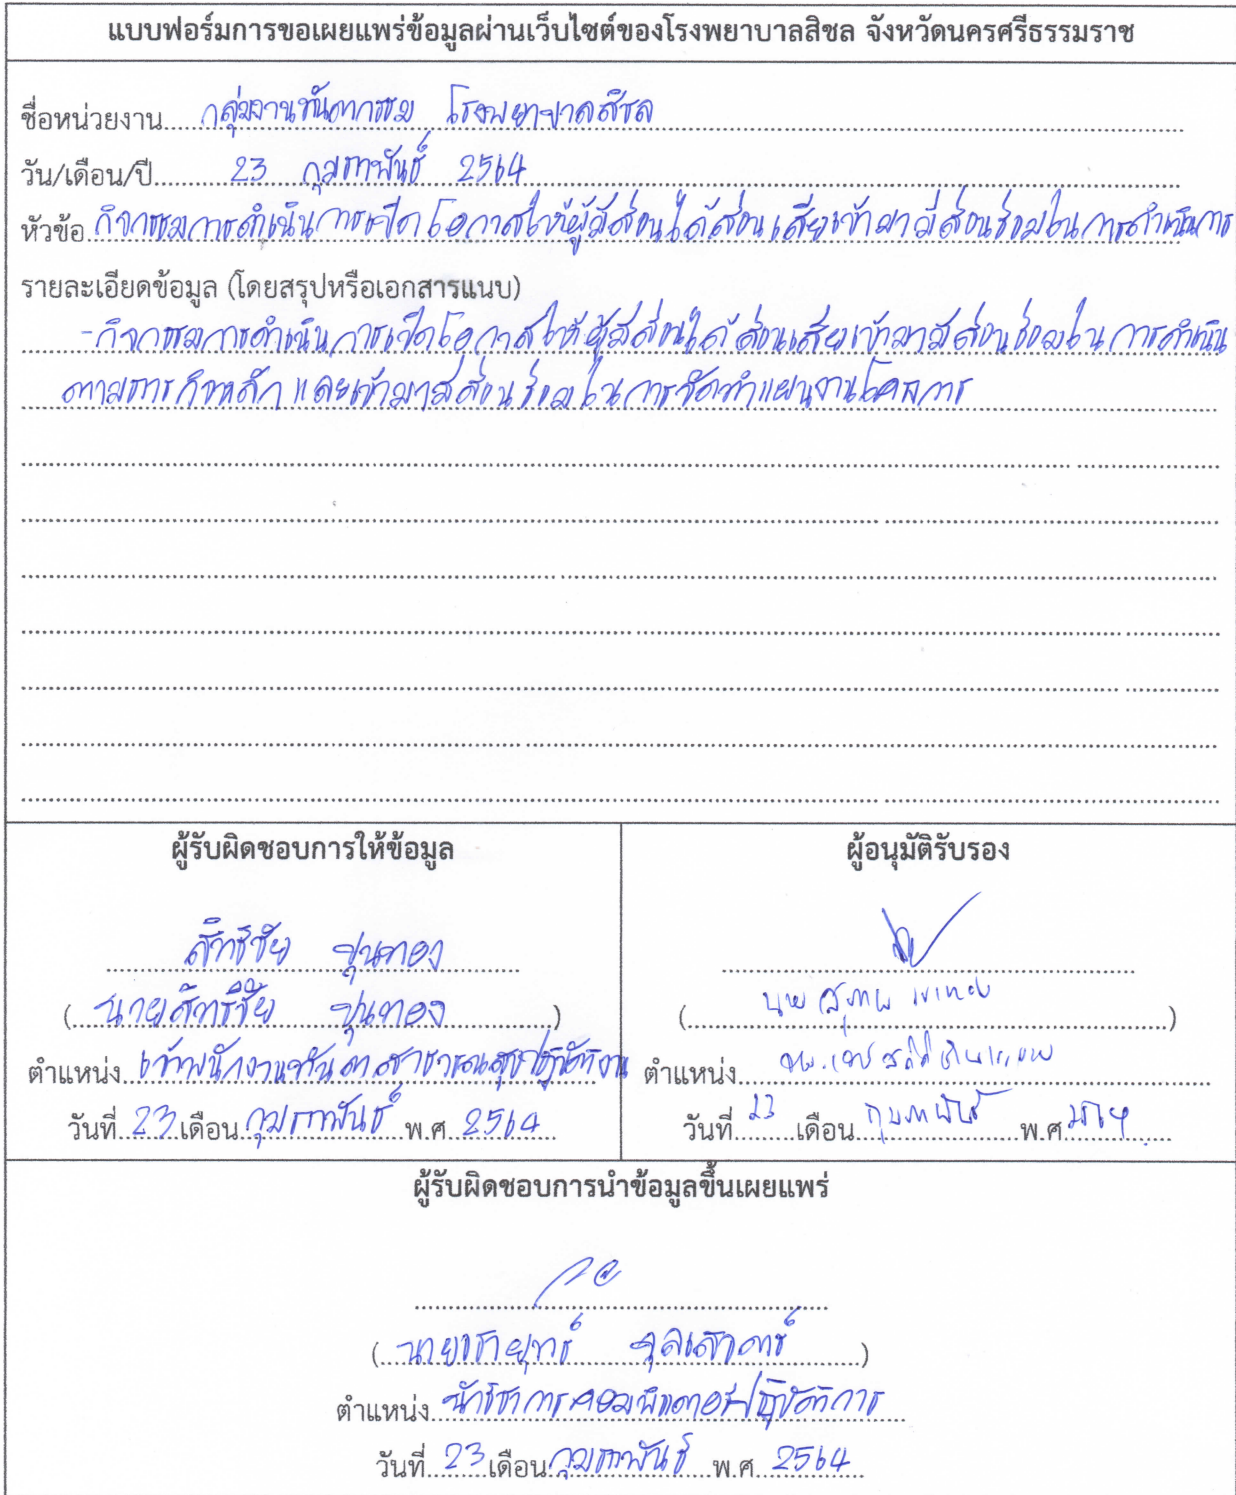 แบบฟอร์มการขอเผยแพร่ข้อมูลผ่านเว็บไซต์ของโรงพยาบาลสิชล จังหวัดนครศรีธรรมราช
ชื่อหน่วยงาน กลุ่มงานทันตกรรม โรงพยาบาลสิชล
วัน/เดือน/ปี 23 กุมภาพันธ์ 2564
หัวข้อ กิจกรรมการดำเนินการเปิดโอกาสให้ผู้มีส่วนได้ส่วนเสียเข้ามามีส่วนร่วมในการดำเนินการ
รายละเอียดข้อมูล (โดยสรุปหรือเอกสารแนบ)
- กิจกรรมการดำเนินการเปิดโอกาสให้ผู้มีส่วนได้ส่วนเสียเข้ามามีส่วนร่วมในการดำเนิน
ตามภารกิจหลัก และเข้ามามีส่วนร่วมในการจัดทำแผนงานโครงการ
ผู้รับผิดชอบการให้ข้อมูล
สิทธิชัย ขุนทอง
(นายสิทธิชัย ขุนทอง)
ตำแหน่ง เจ้าพนักงานทันตสาธารณสุขปฏิบัติงาน
วันที่ 23 เดือน กุมภาพันธ์ พ.ศ 2564
ผู้อนุมัติรับรอง
(นาย)
ตำแหน่ง
วันที่ 23 เดือน กุมภาพันธ์ พ.ศ
ผู้รับผิดชอบการนำข้อมูลขึ้นเผยแพร่
(นาย)
ตำแหน่ง นักวิชาการคอมพิวเตอร์ปฏิบัติการ
วันที่ 23 เดือน กุมภาพันธ์ พ.ศ 2564